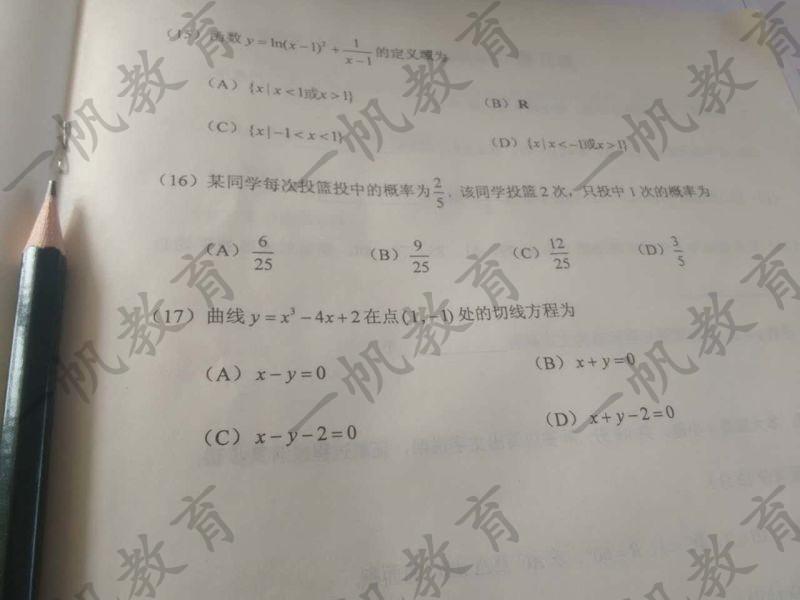 (15) 函数 y = ln(x − 1)² + 1/(x − 1) 的定义域为
(A) {x | x < 1或x > 1}
(B) R
(C) {x | −1 < x < 1}
(D) {x | x < −1或x > 1}
(16) 某同学每次投篮投中的概率为 2/5，该同学投篮 2 次，只投中 1 次的概率为
(A) 6/25
(B) 9/25
(C) 12/25
(D) 3/5
(17) 曲线 y = x³ − 4x + 2 在点 (1, −1) 处的切线方程为
(A) x − y = 0
(B) x + y = 0
(C) x − y − 2 = 0
(D) x + y − 2 = 0
一帆教育
一帆教育
一帆教育
一帆教育
一帆教育
一帆教育